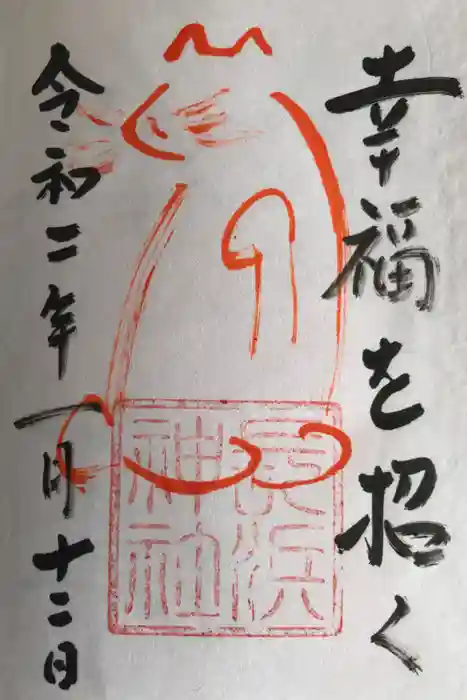 幸福を招く
長浜神社
令和二年一月十二日